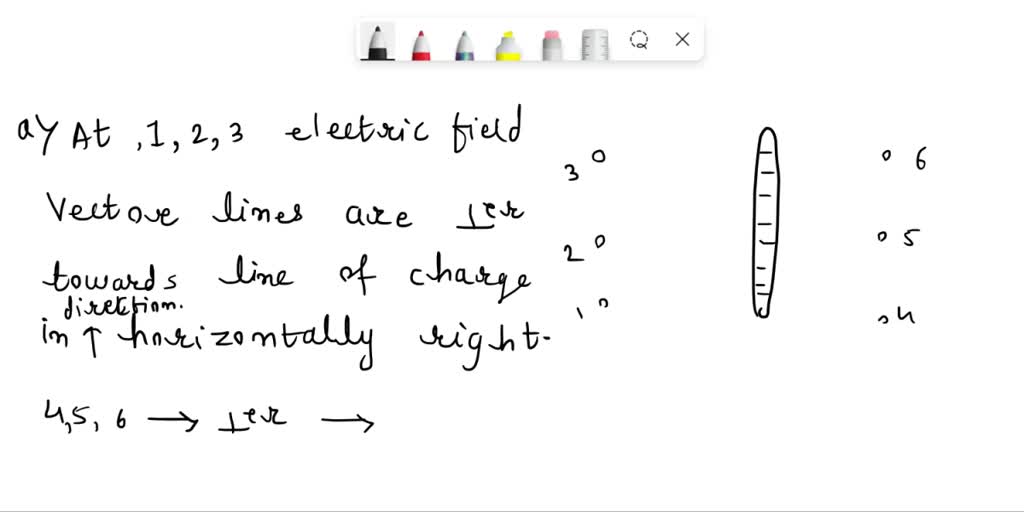 a) At, 1, 2, 3 electric field
Vectore lines are ⊥er
towards line of charge
direction.
in ↑ horizontally right.
4,5, 6 → ⊥er →
3
2
1
6
5
4